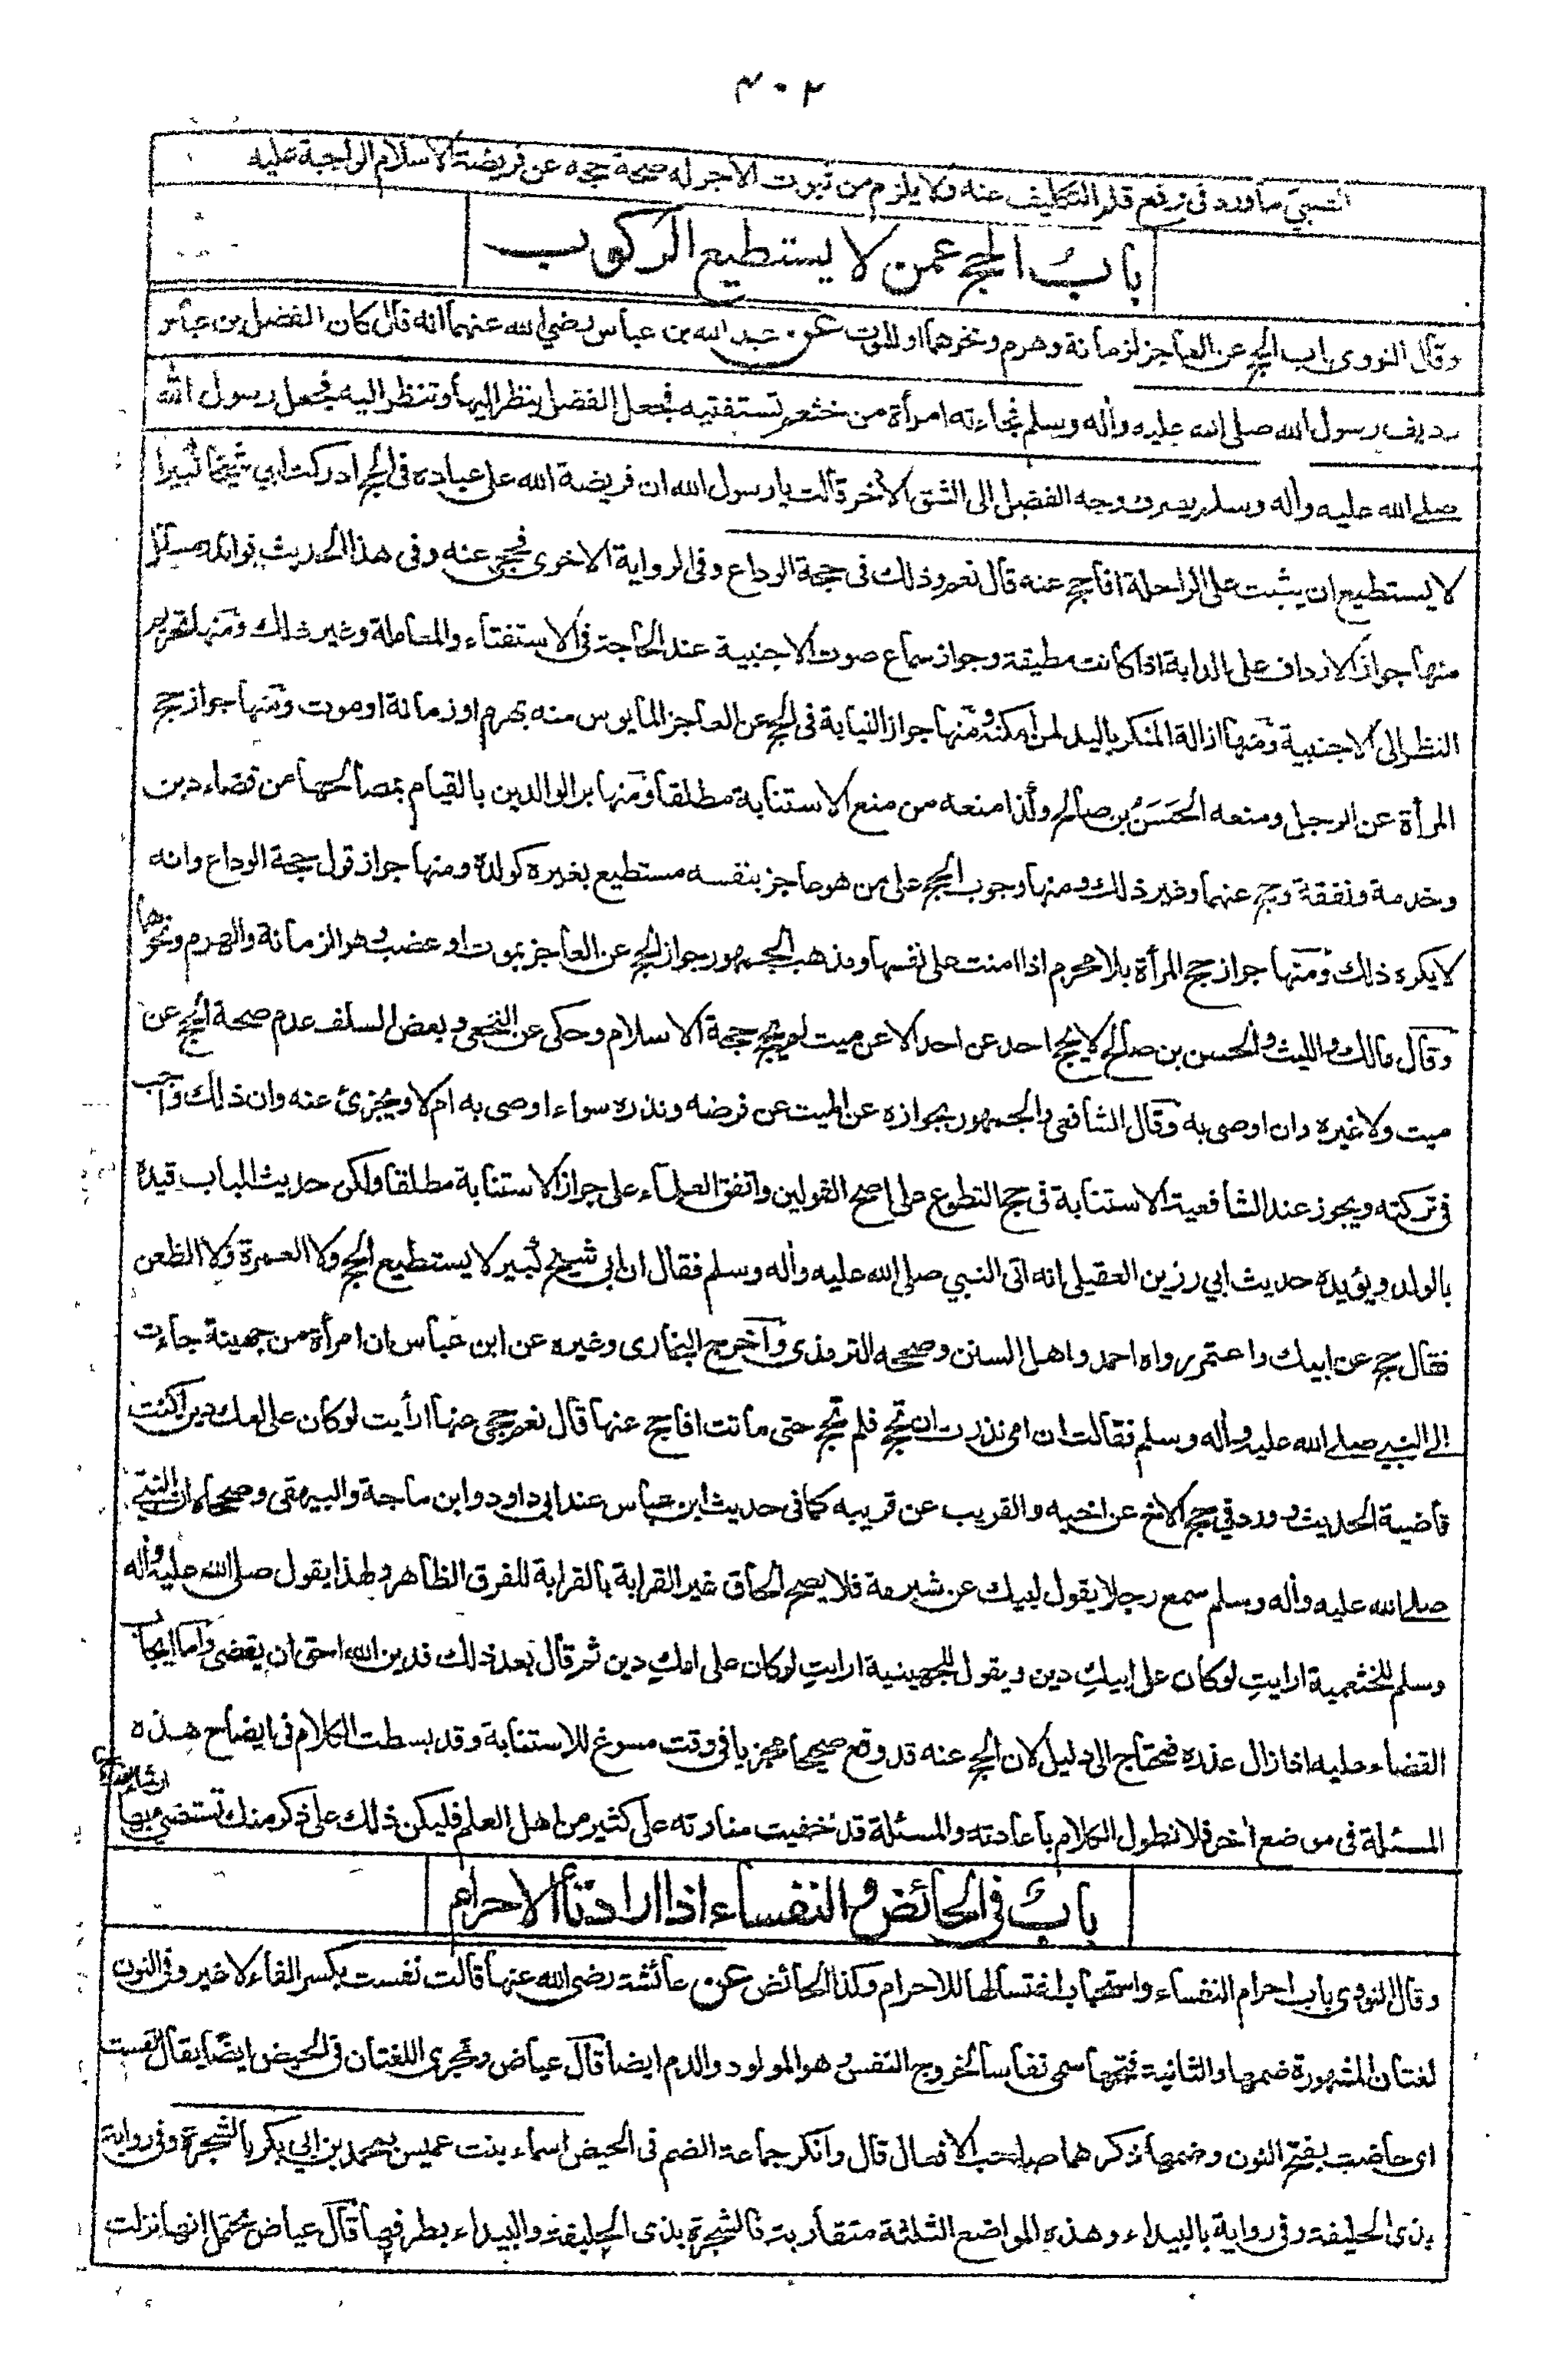 ٤٠٢
الصبي ما ورد في رفع قلم التكليف عنه ولا يلزم من ثبوت الاجر له صحة حجه عن فريضة الاسلام الواجبة عليه
باب الحج عمن لا يستطيع الركوب
وقال النووي باب الحج عن العاجز لزمانة وهرم ونحوهما او للموت عن عبد الله بن عباس رضي الله عنهما انه قال كان الفضل بن عباس
رديف رسول الله صلى الله عليه وأله وسلم فجاءته امرأة من خثعم تستفتيه فجعل الفضل ينظر اليها وتنظر اليه فجعل رسول الله
صلى الله عليه وأله وسلم يصرف وجه الفضل الى الشق الأخر قالت يا رسول الله ان فريضة الله على عباده في الحج ادركت ابي شيخا كبيرا
لا يستطيع ان يثبت على الراحلة افاحج عنه قال نعم وذلك في حجة الوداع وفي الرواية الاخرى فحجي عنه وفي هذا الحديث فوائد
منها جواز الارداف على الدابة اذا كانت مطيقة وجواز سماع صوت الاجنبية عند الحاجة في الاستفتاء والمعاملة وغير ذلك ومنها تحريم
النظر الى الاجنبية ومنها ازالة المنكر باليد لمن امكنه ومنها جواز النيابة في الحج عن العاجز المايوس منه بهرم او زمانة او موت ومنها جواز حج
المرأة عن الرجل ومنعه الحسن بن صالح وكذا منعه من منع الاستنابة مطلقا ومنها بر الوالدين بالقيام بمصالحهما من قضاء دين
وخدمة ونفقة وحج عنهما وغير ذلك ومنها وجوب الحج على من هو عاجز بنفسه مستطيع بغيره كولده ومنها جواز قول حجة الوداع وانه
لا يكره ذلك ومنها جواز حج المرأة بلا محرم اذا امنت على نفسها ومذهب الجمهور جواز الحج عن العاجز بموت او عضب وهو الزمانة والهرم ونحوها
وقال مالك والليث والحسن بن صالح لا يحج احد عن احد الا عن ميت لم يحج حجة الاسلام وحكى عن النخعي وبعض السلف عدم صحة الحج عن
ميت ولا غيره وان اوصى به وقال الشافعي والجمهور بجوازه عن الميت عن فرضه ونذره سواء اوصى به ام لا ويجزئ عنه وان ذلك واجب
في تركته ويجوز عند الشافعية الاستنابة في حج التطوع على اصح القولين واتفق العلماء على جواز الاستنابة مطلقا ولكن حديث الباب قيده
بالولد ويؤيده حديث ابي رزين العقيلي انه اتى النبي صلى الله عليه وأله وسلم فقال ان ابي شيخ كبير لا يستطيع الحج ولا العمرة ولا الظعن
فقال حج عن ابيك واعتمر رواه احمد واهل السنن وصححه الترمذي وأخرج البخاري وغيره عن ابن عباس ان امرأة من جهينة جاءت
الى النبي صلى الله عليه وأله وسلم فقالت ان امي نذرت ان تحج فلم تحج حتى ماتت افاحج عنها قال نعم حجي عنها ارأيت لو كان على امك دين اكنت
قاضية الحديث وورد في حج الاخ عن اخيه والقريب عن قريبه كما في حديث ابن عباس عند ابي داود وابن ماجة والبيهقي وصححاه ان النبي
صلى الله عليه وأله وسلم سمع رجلا يقول لبيك عن شبرمة فلا يصح الحاق غير القرابة بالقرابة للفرق الظاهر ولهذا يقول صلى الله عليه وأله
وسلم للخثعمية ارايت لو كان على ابيك دين ويقول للجهينية ارايت لو كان على امك دين ثم قال بعد ذلك فدين الله احق ان يقضى وأما ايجاب
القضاء عليه اذا زال عذره فمحتاج الى دليل لان الحج عنه قد وقع صحيحا مجزيا في وقت مسوغ للاستنابة وقد بسطت الكلام في ايضاح هذه
المسئلة في موضع أخر فلا نطول الكلام باعادته والمسئلة قد خفيت منارته على كثير من اهل العلم فليكن ذلك على ذكر منك تستضئ بها
باب في الحائض والنفساء اذا ارادتا الاحرام
وقال النووي باب احرام النفساء واستحباب اغتسالها للاحرام وكذا الحائض عن عائشة رضي الله عنها قالت نفست بكسر الفاء لا غير وفي النون
لغتان المشهورة ضمها والثانية فتحها سمي نفاسا لخروج النفس وهو المولود والدم ايضا قال عياض وتجري اللغتان في الحيض ايضا يقال نفست
اي حاضت بفتح النون وضمها ذكرهما صاحب الافعال قال وانكر جماعة الضم في الحيض اسماء بنت عميس بمحمد بن ابي بكر بالشجرة وفي رواية
بذي الحليفة وفي رواية بالبيداء وهذه المواضع الثلثة متقاربة فالشجرة بذي الحليفة والبيداء بطرفها قال عياض يحتمل انها نزلت